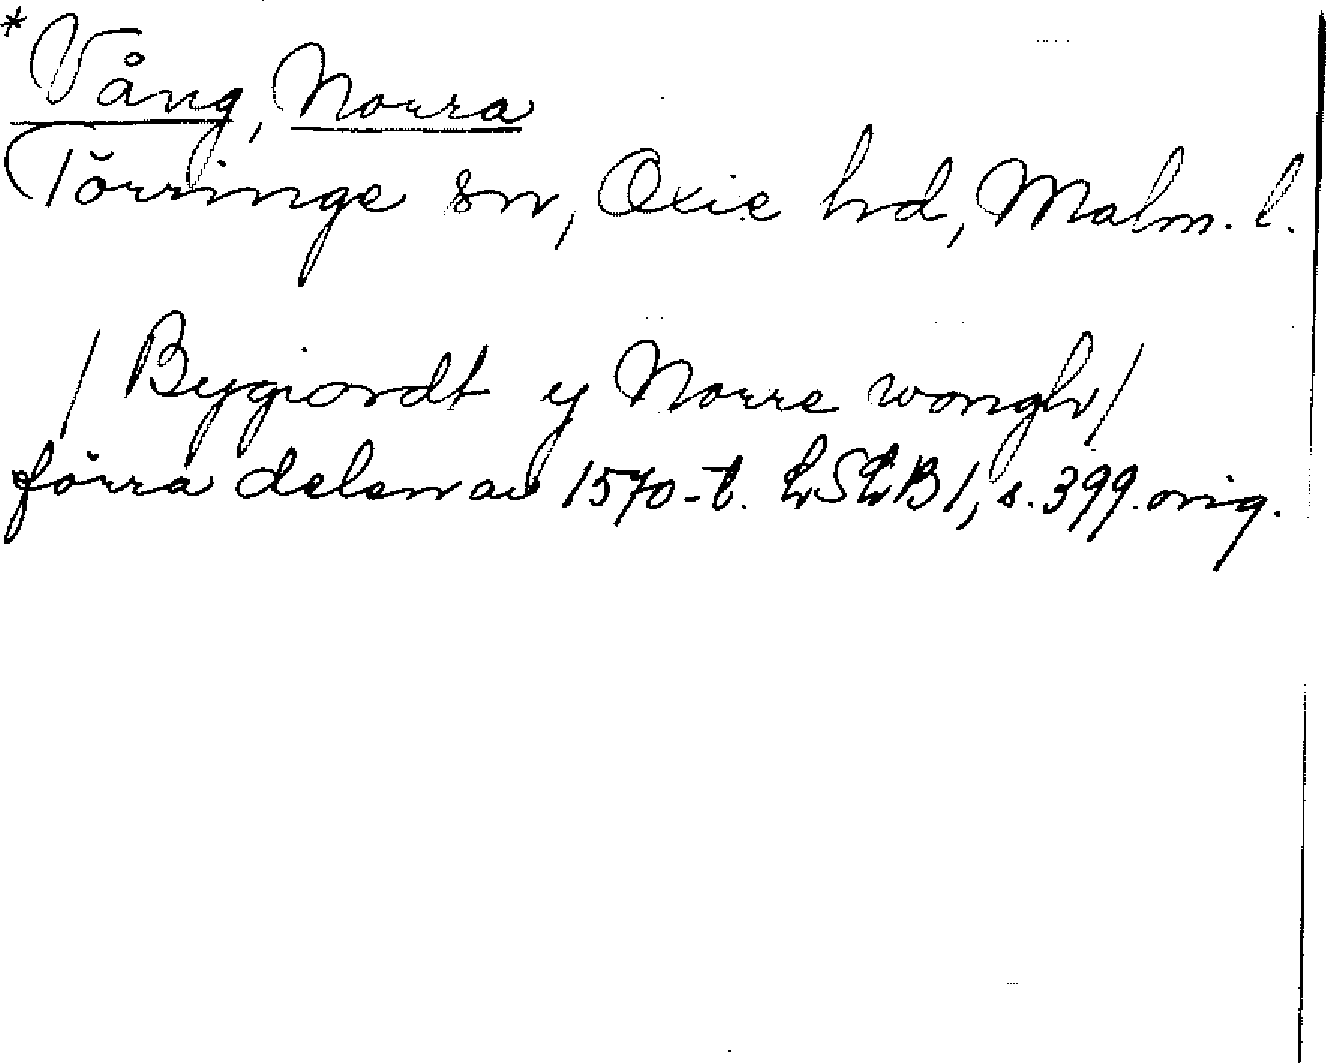 *Vång, Norra
Törringe sn, Oxie hd, Malm. l.
/ Bygiordt y Norre wongh/
förra delen av 1570-t. LSLB 1, s. 399. orig.